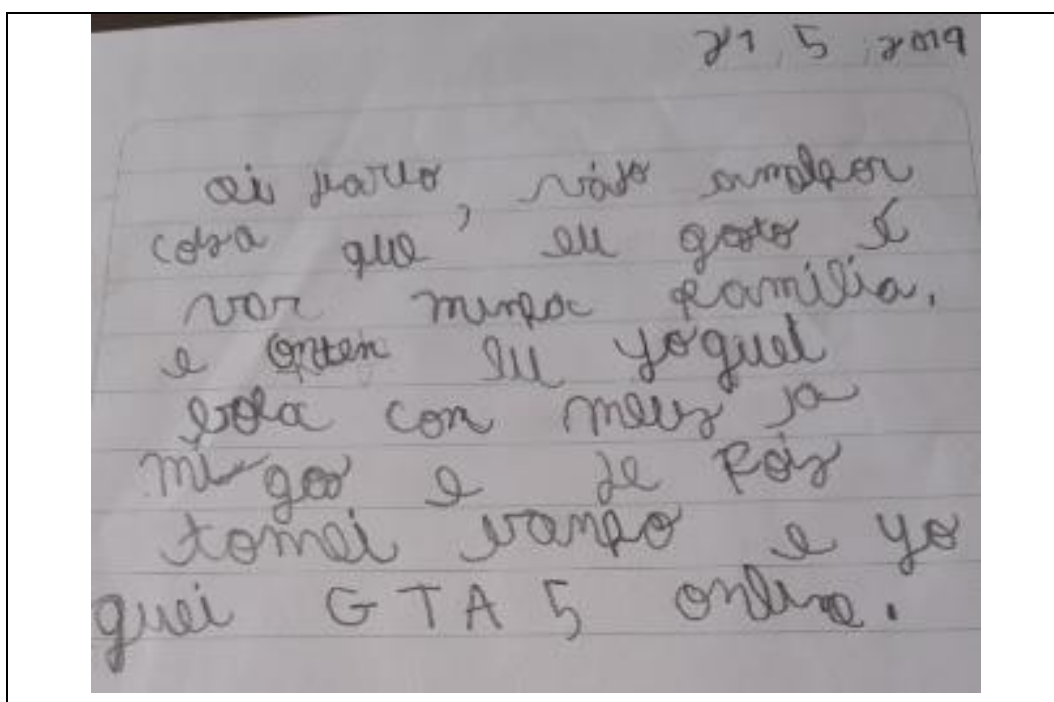 21, 5, 2019
oi
coza que eu gosto é
var minha família.
e onten eu yoguei
bola con meus
migos e de pois
tomei banho e yo
guei GTA 5 online.